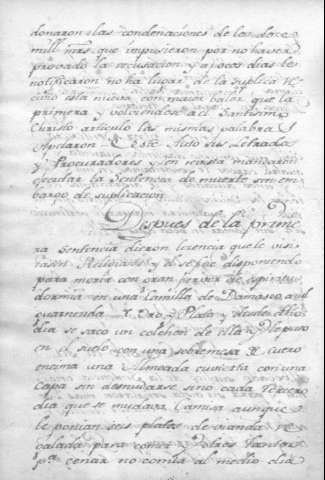 donaron las condenaciones de los doze
mill mrs. que impusieron por no haver
provado la recusacion y a pocos dias le
notificaron no ha lugar de la suplica re
civio esta nueva con maior valor que la
primera y volviendose al Santisimo
Christo articulo las mismas palabras
Apelaron de este Auto sus Letrados
y Procuradores y sin revista mandaron
ejecutar la Sentencia de muerte sin em
bargo de suplicacion
Despues de la prime
ra sentencia dieron licencia que le visi
tasen Religiosos y el se fue disponiendo
para morir con gran fervor de espiritu
dormia en una Camilla de Damasco azul
guarnecida de Oro, y Plata y desde otro
dia se saco un colchon de ella y le puso
en el suelo con una sobremesa de cuero
encima una Almoada cuvierta con una
Capa sin desnudarse sino cada Tercero
dia que se mudava Camisa aunque
le ponian seis platos de vianda re
galada para comer y otros tantos
pa. cenar no comia al medio dia